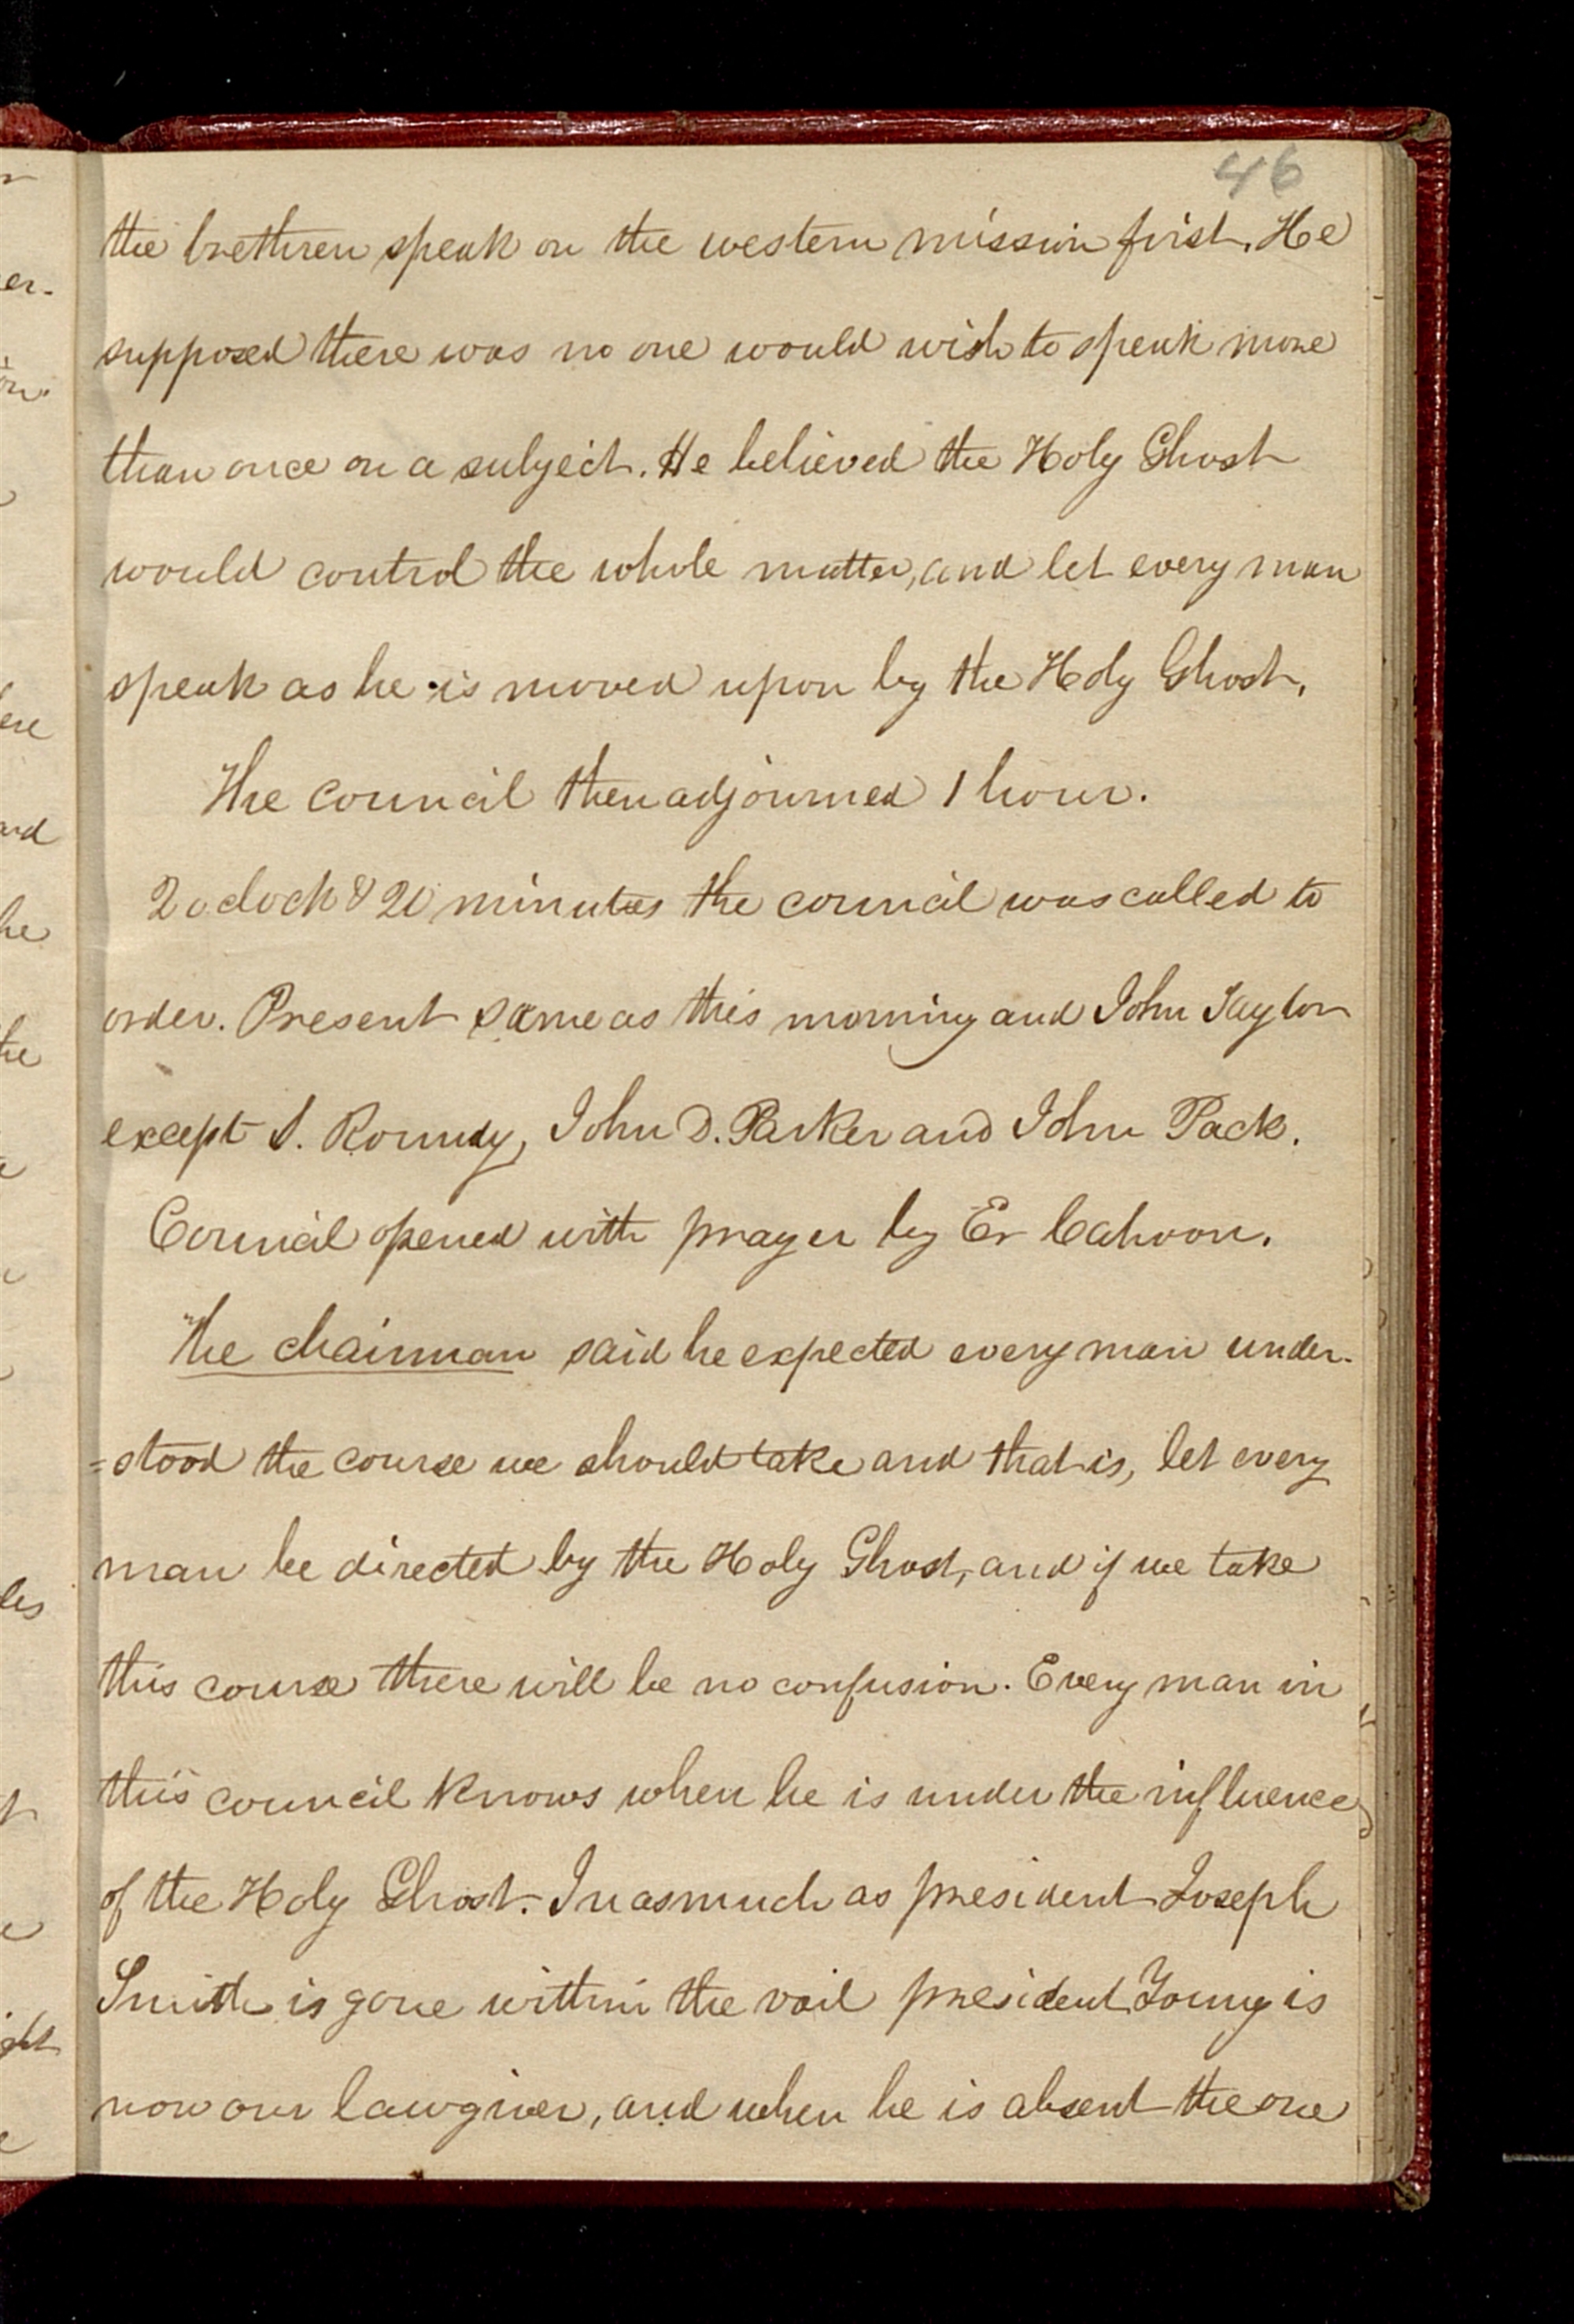 46
the brethren speak on the western mission first. He
supposed there was no one would wish to speak more
than once on a subject. He believed the Holy Ghost
would control the whole matter, and let every man
speak as he is moved upon by the Holy Ghost.
The council then adjourned 1 hour.
2 o clock & 20 minutes the council was called to
order. Present same as this morning and John Taylor
except S. Roundy, John D. Parker and John Pack.
Council opened with prayer by Er Cahoon.
The chairman said he expected every man under-
=stood the course we should take and that is, let every
man be directed by the Holy Ghost, and if we take
this course there will be no confusion. Every man in
this council knows when he is under the influence
of the Holy Ghost. Inasmuch as president Joseph
Smith is gone within the vail president Young is
now our lawgiver, and when he is absent the one
er.
ere
and
he
the
les
ght